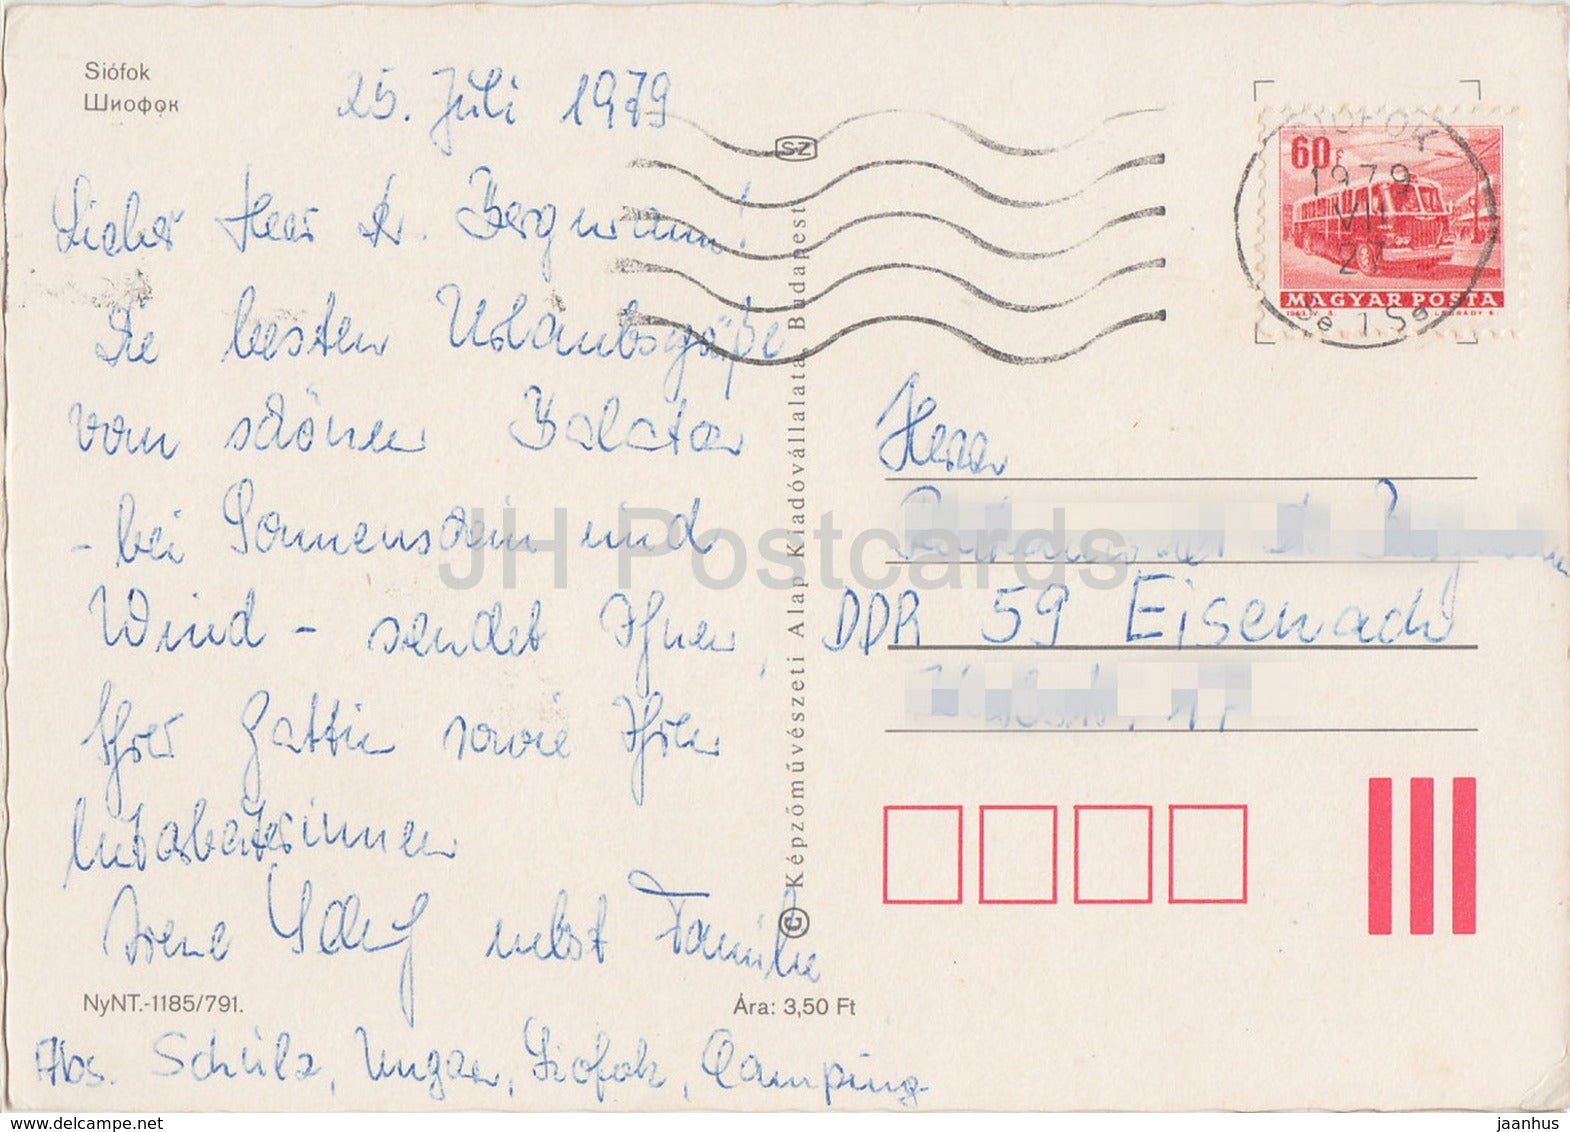 Siófok
Шиофок
25. Juli 1979
Lieber Herr Dr. Bergmann!
Die besten Urlaubsgrüße
vom schönen Balaton
- bei Sonnenschein und
Wind - sendet Ihnen,
Ihrer Gattin sowie Ihren
Mitarbeiterinnen
Irene nebst Familie
NyNT.-1185/791.
Ára: 3,50 Ft
Abs. Schülz, Ungarn, Siofok, Camping
SZ
© Képzőművészeti Alap Kiadóvállalata, Budapest
60 f
MAGYAR POSTA
SIOFOK
1979
VII
27
Herrn
DDR 59 Eisenach
17
JH Postcards
www.delcampe.net
jaanhus